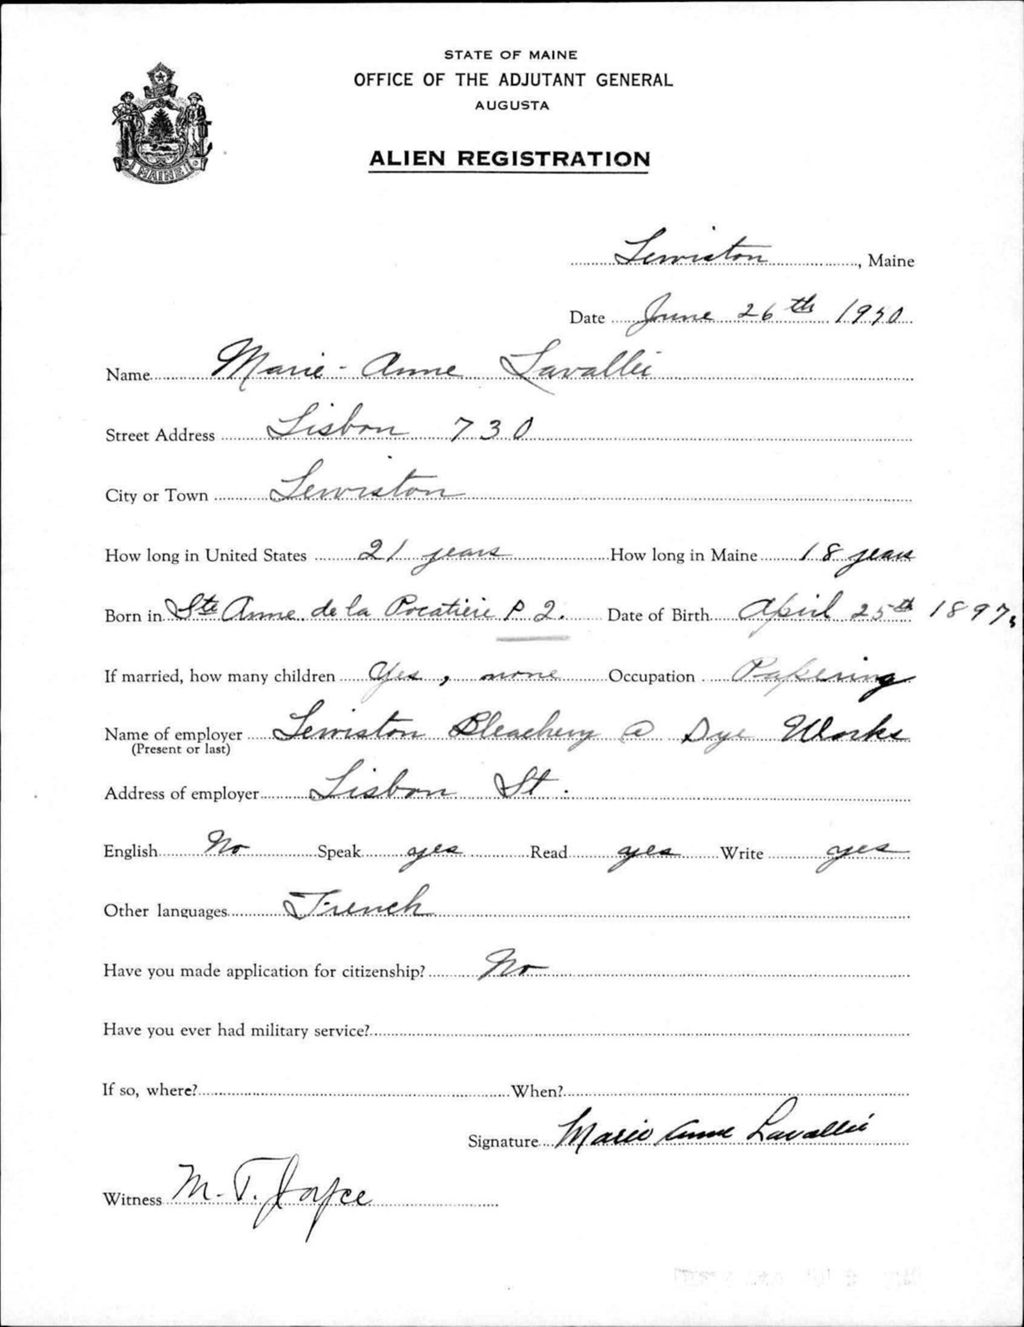 STATE OF MAINE
OFFICE OF THE ADJUTANT GENERAL
AUGUSTA
ALIEN REGISTRATION
MAINE
Lewiston, Maine
Date June 26th 1940
Name Marie-Anne Lavallée
Street Address Lisbon 730
City or Town Lewiston
How long in United States 21 years How long in Maine 18 years
Born in Ste Anne de la Pocatiere P 2. Date of Birth April 25th 1897.
If married, how many children Yes, none Occupation Papering
Name of employer Lewiston Bleachery @ Dye Works
(Present or last)
Address of employer Lisbon St.
English No Speak yes Read yes Write yes
Other languages French
Have you made application for citizenship? No
Have you ever had military service?
If so, where? When?
Signature Marie Anne Lavallée
Witness M. T. Joyce